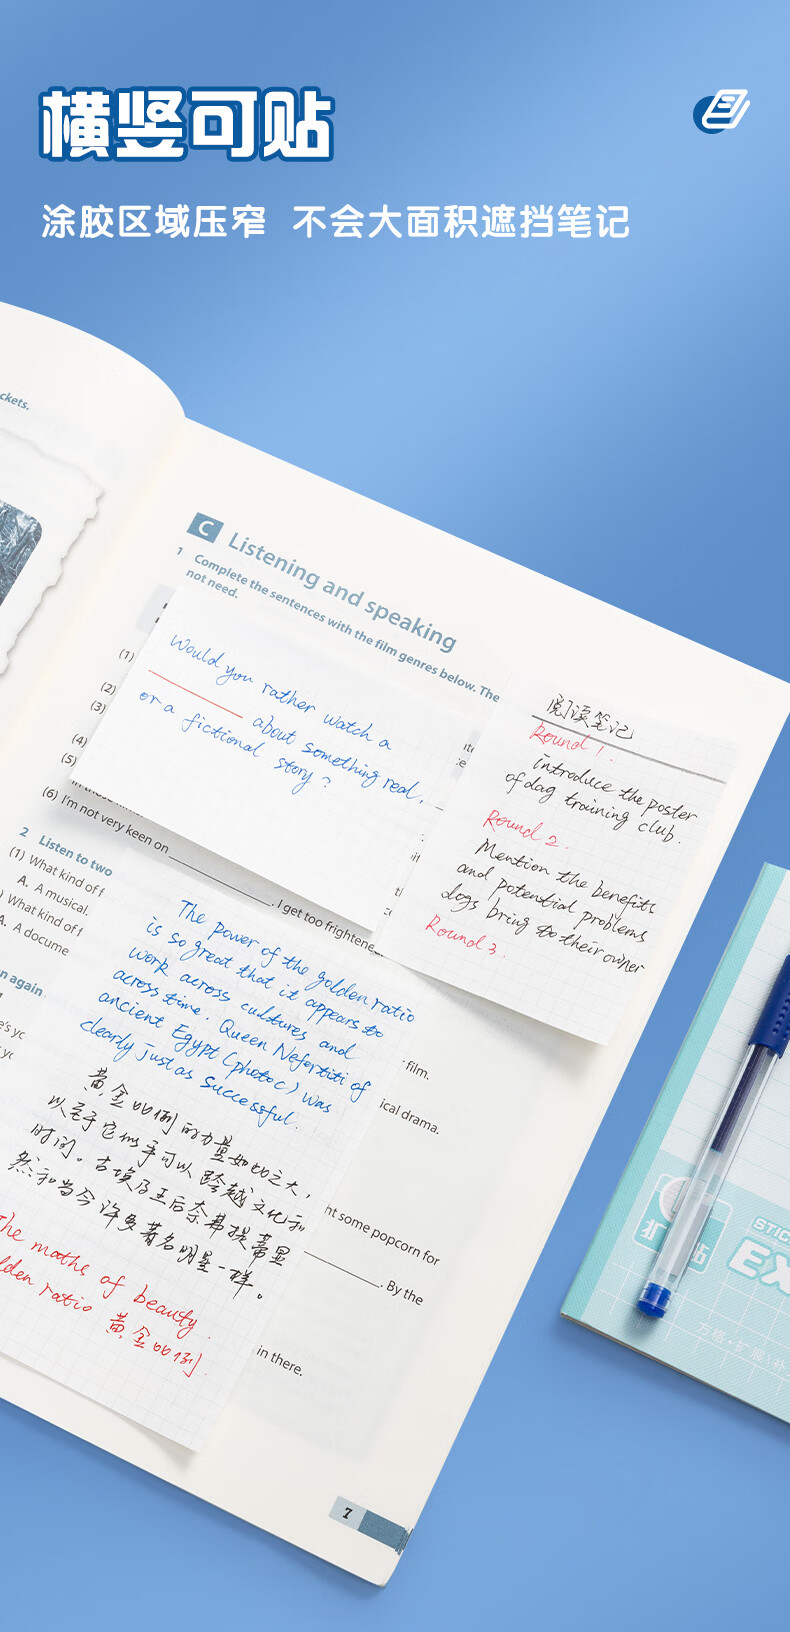 横竖可贴
涂胶区域压窄 不会大面积遮挡笔记
ckets.
C Listening and speaking
1 Complete the sentences with the film genres below. The
not need.
(1)
(2)
(3)
(4)
(5)
(6) I'm not very keen on
. I get too frightene
Would you rather watch a
about something real,
or a fictional story?
阅读笔记
Round 1.
introduce the poster
of dag training club.
Round 2.
Mention the benefits
and potential problems
dogs bring to their owner
Round 3.
2 Listen to two
(1) What kind of f
A. A musical.
) What kind of f
A. A docume
n again
e's yc
film.
ical drama.
ht some popcorn for
. By the
in there.
The power of the golden ratio
is so great that it appears to
work across cultures and
across time. Queen Nefertiti of
ancient Egypt (photo c) was
clearly just as successful.
黄金比例的力量如此之大，
以至于它似乎可以跨越文化和
时间。古埃及王后奈弗提蒂显
然和当今许多著名明星一样。
The maths of beauty.
lden ratio 黄金比例
7
扩 贴
STIC
EX
方格·扩展\补